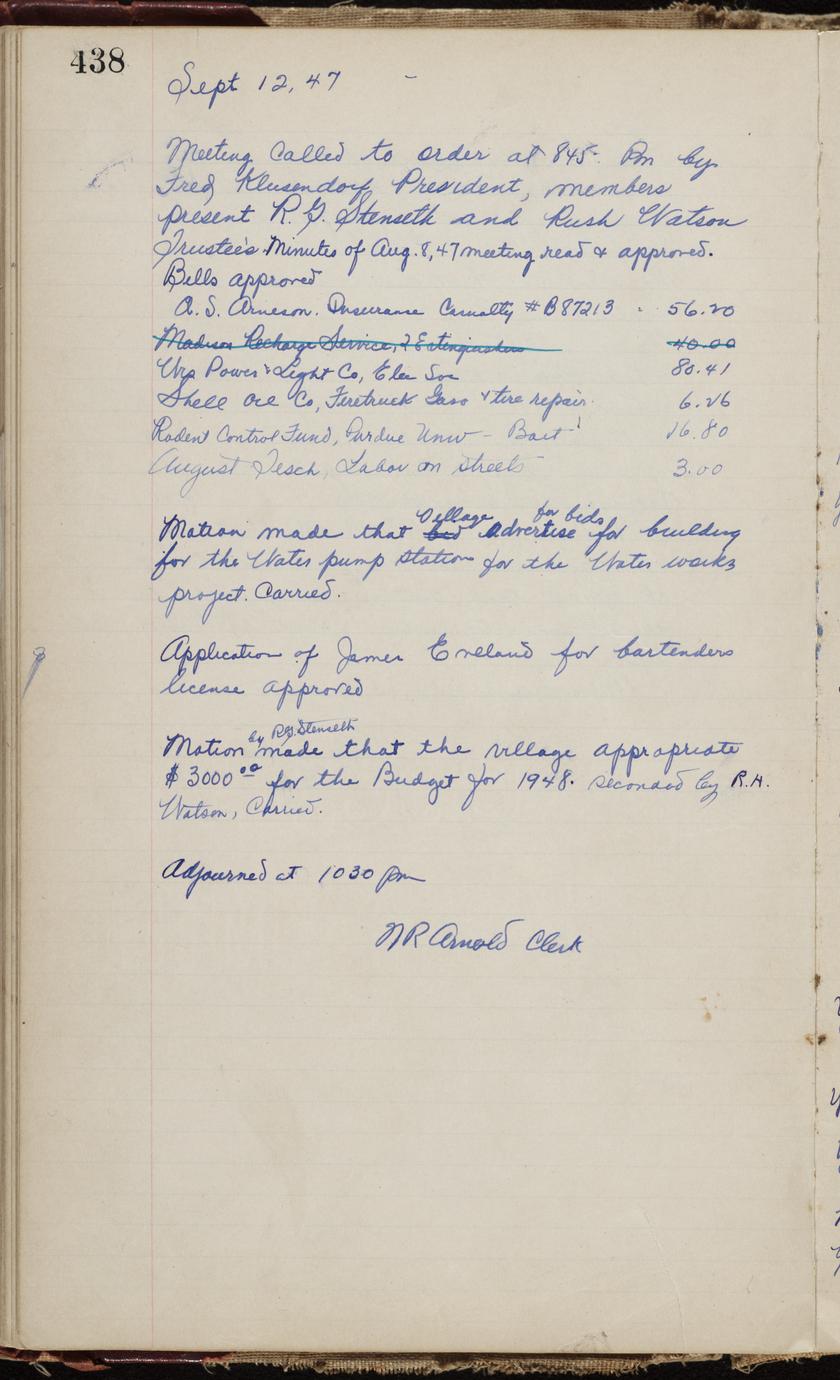 438
Sept 12, 47 -
Meeting Called to order at 845 Pm by
Fred Klusendorf, President, members
present R.G. Stenseth and Rush Watson
Trustee's. Minutes of Aug. 8, 47 meeting read & approved.
Bills approved
A.S. Arneson. Insurance Casualty #B87213 - 56.20
Madison Recharge Service, 2 Extinguishers 40.00
Wis Power & Light Co, Elec Soc 80.41
Shell Oil Co, Firetruck Gaso & tire repair. 6.26
Rodent Control Fund, Purdue Univ - Bait 16.80
August Tesch, Labor on streets 3.00
Village for bids
Motion made that bid Advertise for building
for the Water pump station for the Water works
project. Carried.
Application of James Eveland for bartenders
license approved
by R.G. Stenseth
Motion made that the village appropriate
$3000.00 for the Budget for 1948. seconded by R.H.
Watson, Carried.
Adjourned at 1030 pm
NR Arnold Clerk